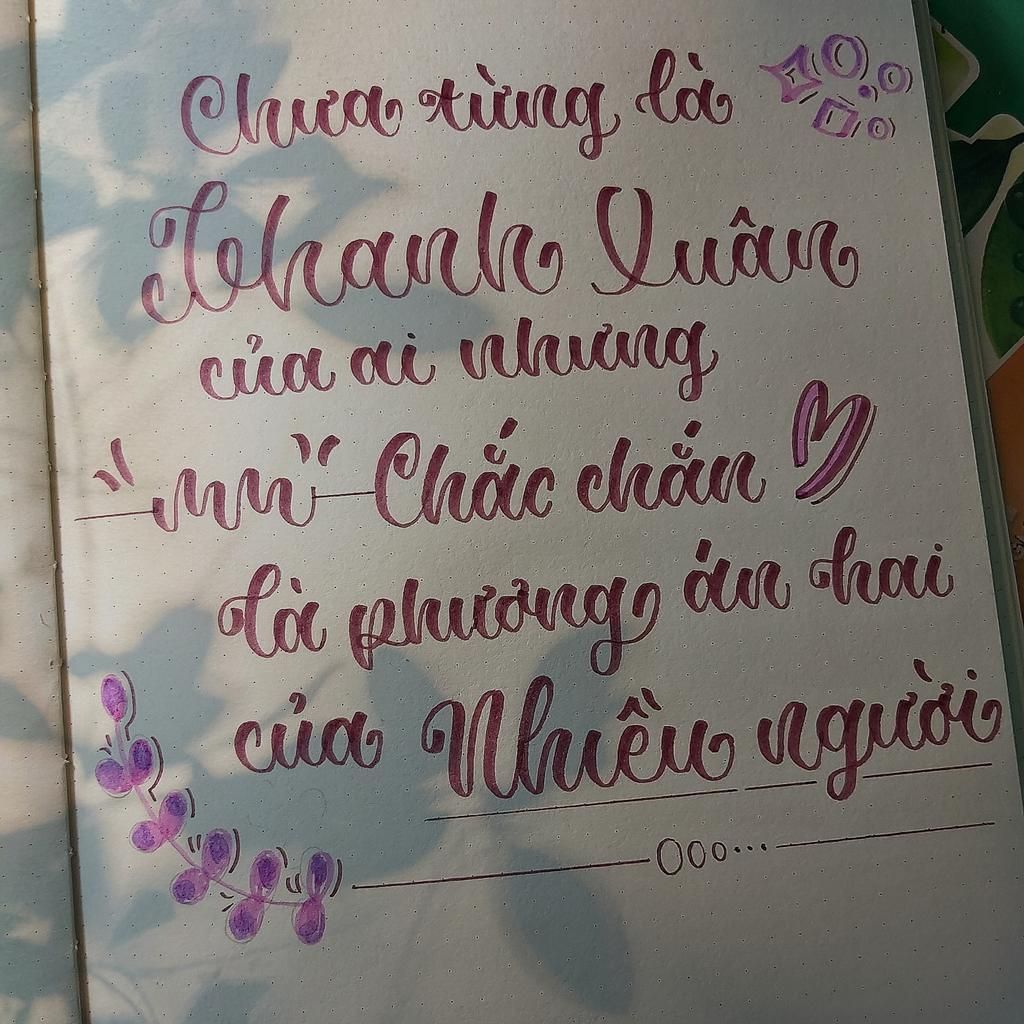 Chưa từng là
Thanh Xuân
của ai nhưng
Chắc chắn
là phương án hai
của Nhiều người